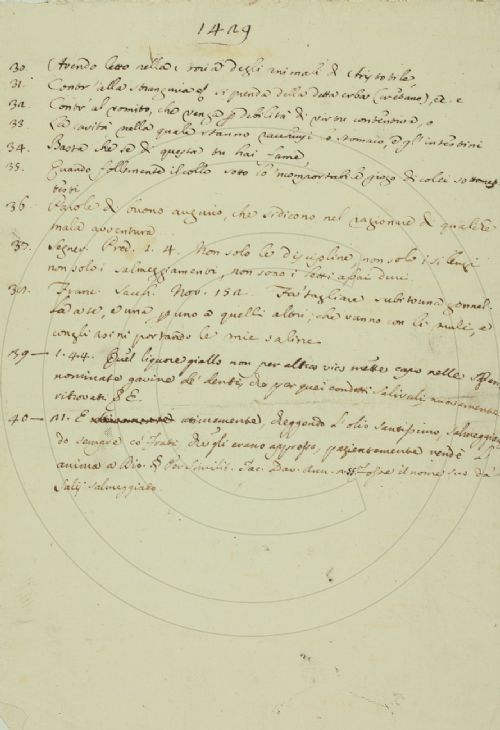 1429
30. Avendo letto nella storia degli animali di Aristotile
31. Contr' alla stranguria si prenda della detta erba (), &c. e
32. Contr' al vomito, che venga p debilità di virtù contentiva, o
33 La cavità nella quale stanno racchiusi lo stomaco, e gl' intestini
34. Basta che se di questa tu hai fame
35. Quando follemente il collo sotto lo 'mportabile giogo di colei
36. Parole di buono augurio, che si dicono nel ragionare di qualche
mala avventura.
37. Segner. Pred. 1. 4. Non solo le discipline, non solo i silenzi
non solo i salmeggiamenti, non sono i letti assai duri.
38. Franc. Sacch. Nov. 152. Fa' tagliare subito una gonnel-
la a te, e una p uno a quelli altri, che vanno con le mule, e
portando le mie saline
39 — 1. 44. Quel liquore giallo non per altra via mette capo nelle
nominate gavine de' denti, che per quei condotti salivali nuovamente
ritrovati & E.
40 — E ultimamente chieggendo l' olio santissimo, salmeggian-
do sempre co' Frati che gli erano appresso, pazientemente rendè l'
anima a Dio. & Per Similit. Tac. Dav. Ann. Fosse il nome suo da'
Salij salmeggiato.